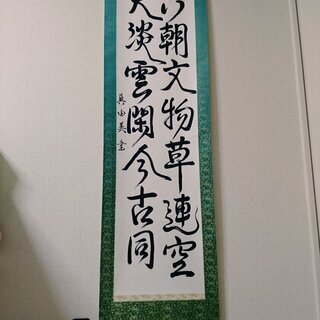 朝文物草連空
淡雲閑今古同
真由美書